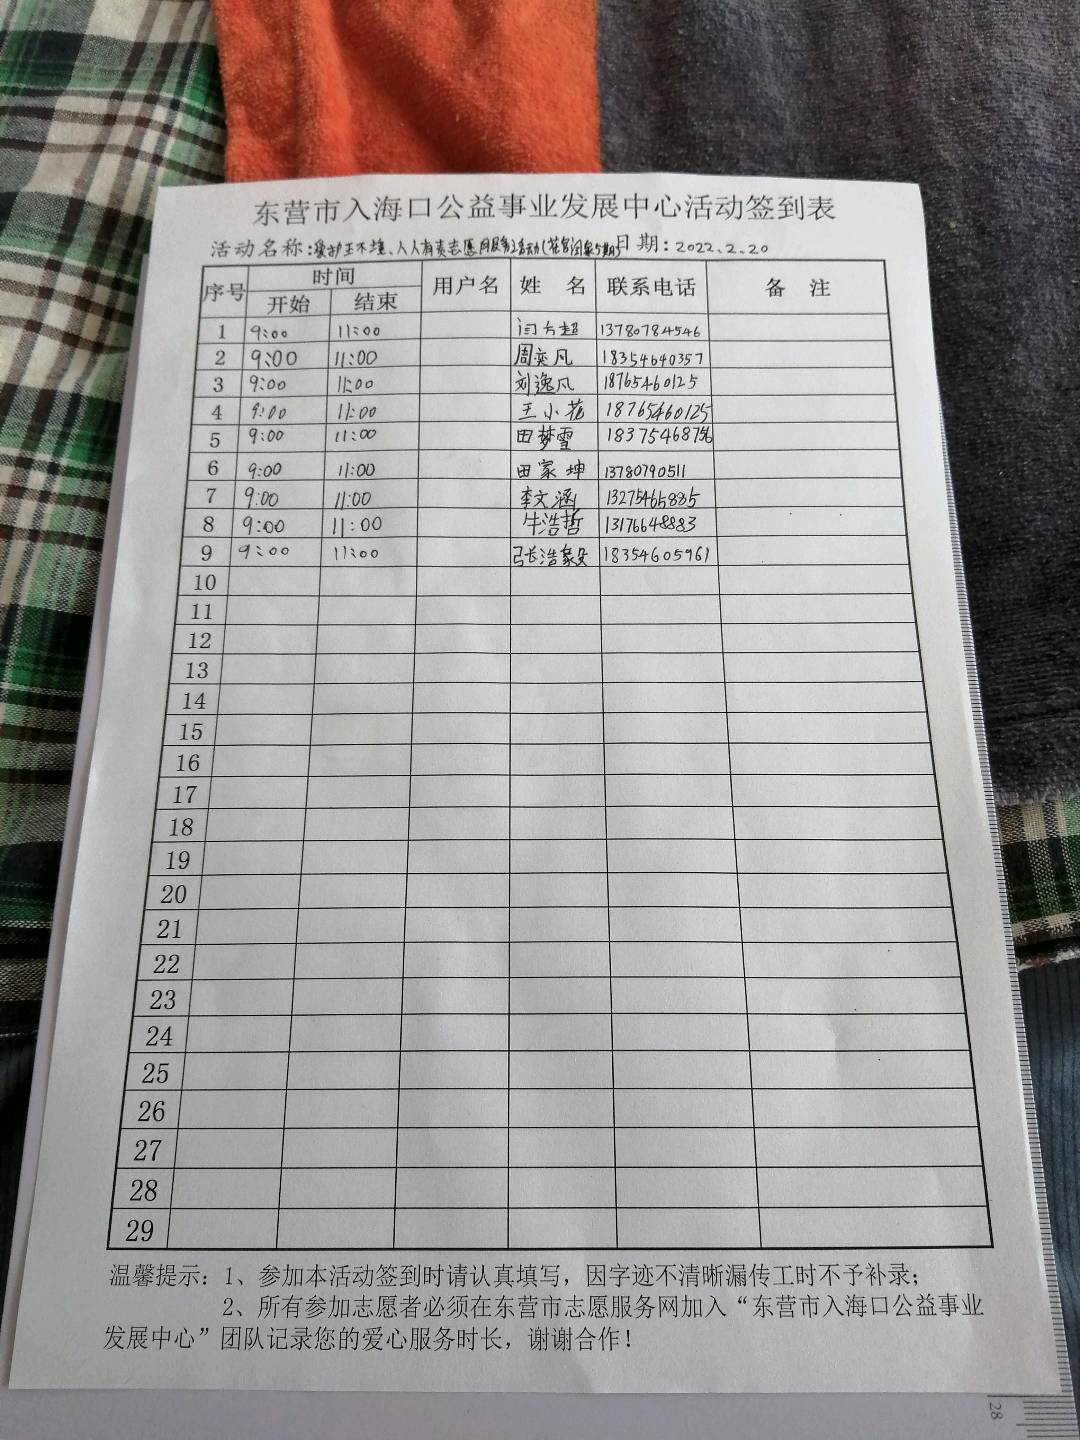 东营市入海口公益事业发展中心活动签到表
活动名称:爱护 人人有责志愿服务活动 日期:2022.2.20
序号 时间 用户名 姓 名 联系电话 备 注
开始 结束
1 9:00 11:00 闫方超 13780784546
2 9:00 11:00 周奕凡 18354640357
3 9:00 11:00 刘逸凡 18765460125
4 9:00 11:00 王小花 18765460125
5 9:00 11:00 田梦雪
6 9:00 11:00 田家坤 13780790511
7 9:00 11:00 李文涵 13275465885
8 9:00 11:00 牛浩哲 13176648883
9 9:00 11:00 张浩毅 18354605961
10
11
12
13
14
15
16
17
18
19
20
21
22
23
24
25
26
27
28
29
温馨提示:1、参加本活动签到时请认真填写,因字迹不清晰漏传工时不予补录;
2、所有参加志愿者必须在东营市志愿服务网加入“东营市入海口公益事业
发展中心”团队记录您的爱心服务时长,谢谢合作!
28